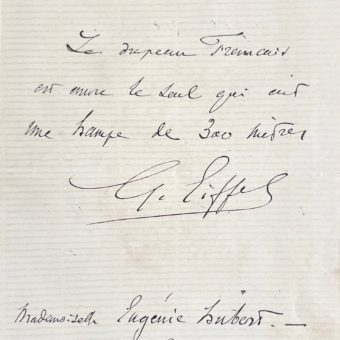 Le drapeau Français
est encore le seul qui ait
une hampe de 300 mètres
G. Eiffel
Mademoiselle Eugénie Hubert. —